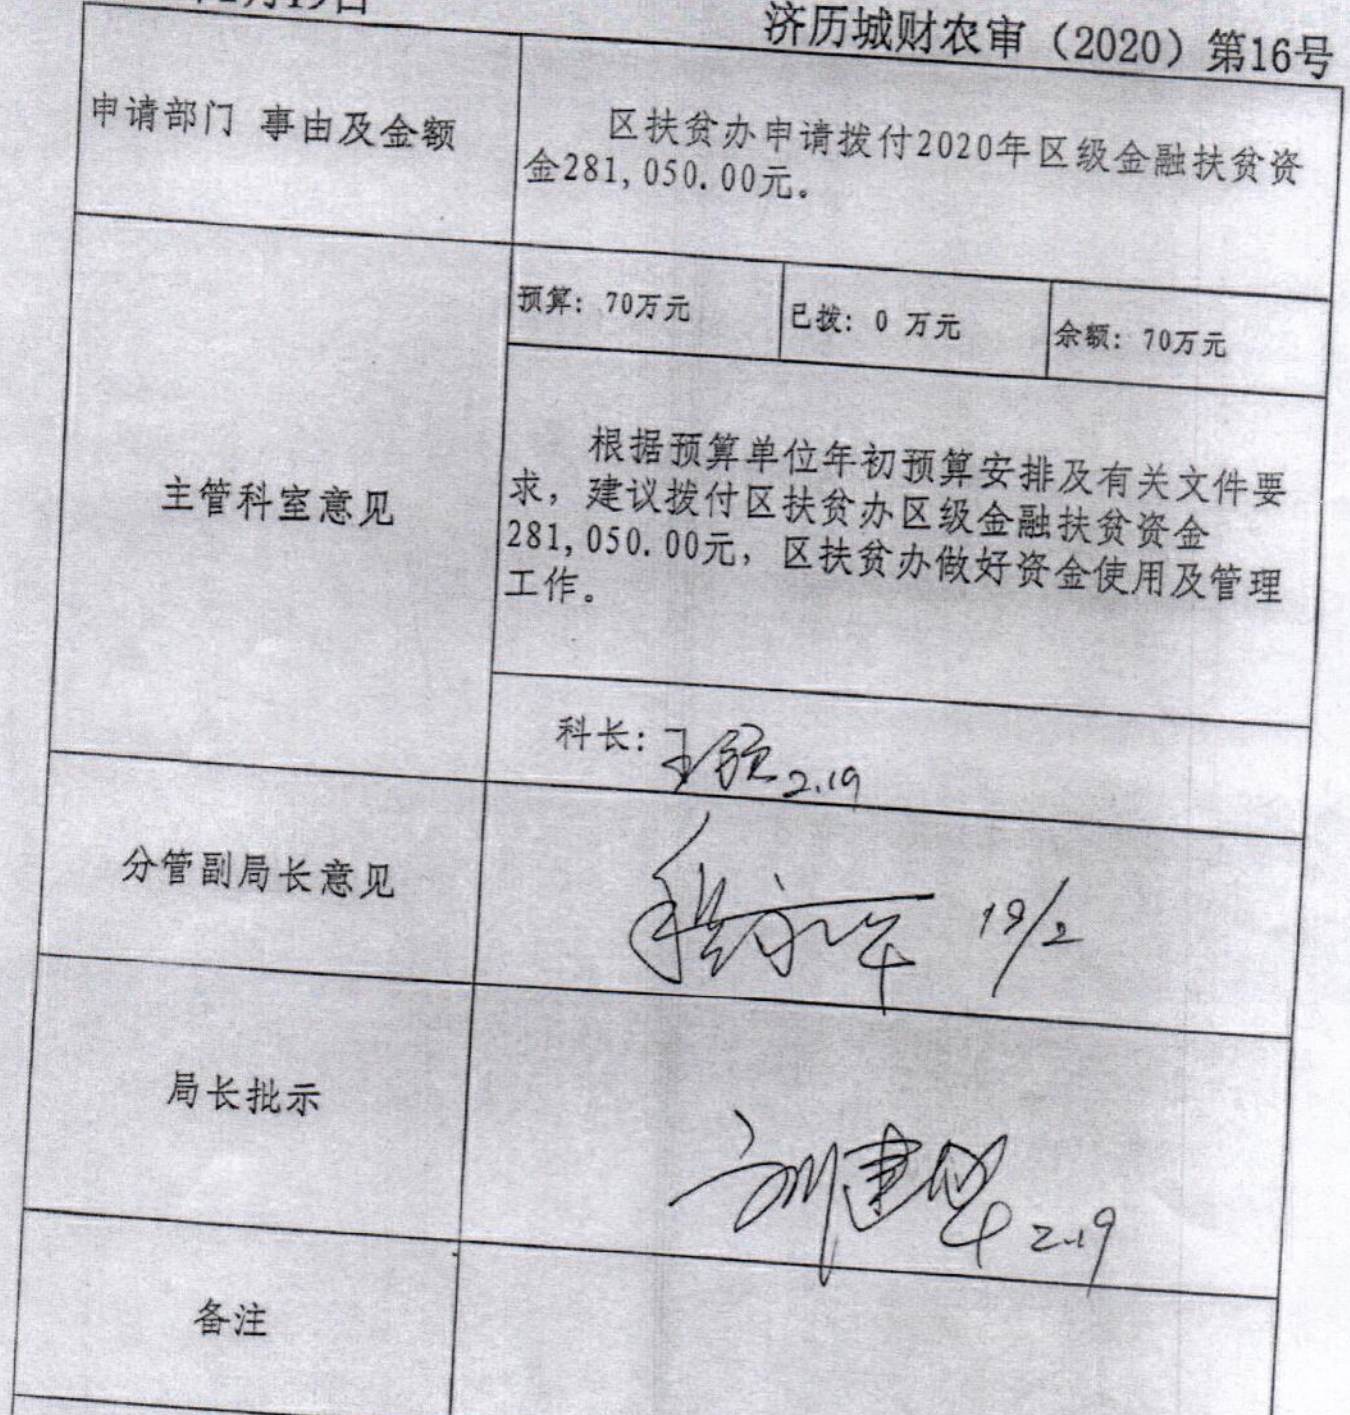 月19日
济历城财农审（2020）第16号
申请部门 事由及金额
区扶贫办申请拨付2020年区级金融扶贫资
金281,050.00元。
预算：70万元
已拨：0 万元
余额：70万元
主管科室意见
根据预算单位年初预算安排及有关文件要
求，建议拨付区扶贫办区级金融扶贫资金
281,050.00元，区扶贫办做好资金使用及管理
工作。
科长：王 2.19
分管副局长意见
19/2
局长批示
刘建华 2.19
备注